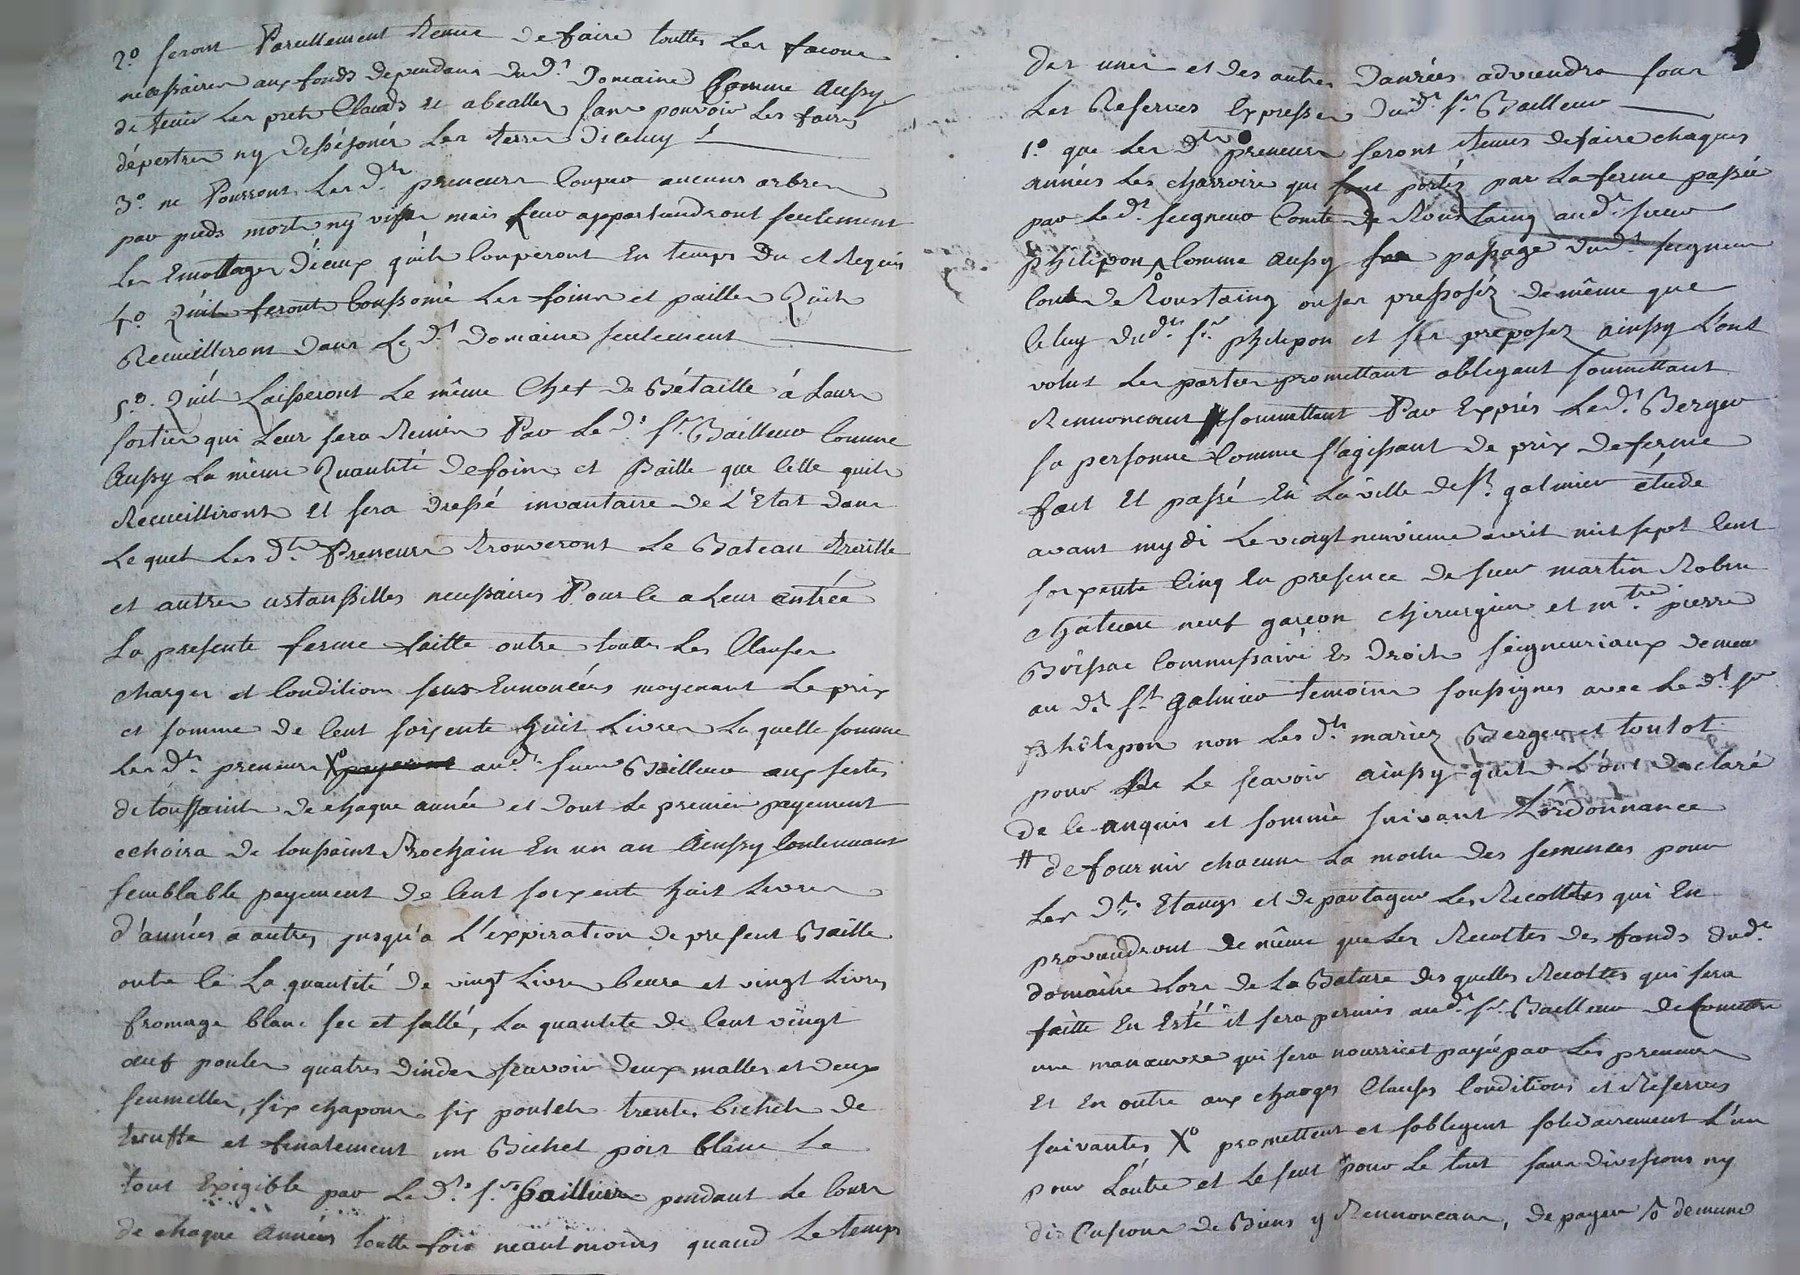 2.° seront Pareillement tenus de faire touttes les facons
necessaires aux fonds dependans dud.t Domaine Comme Aussy
de tenir les prets Clauds et abealles sans pouvoir les faire
dépertrer ny dessésonér les terres diceluy
3.° ne Pourront les d.ts preneurs Couper aucuns arbres
par pieds morts ny vifs mais leur appartiendront seulement
les Emottages d'ieux qu'ils Couperont En temps Du et Requis
4.° Qu'il feront Conssomé les foins et pailles Qu'ils
Recueilliront dans Le d.t domaine seulement
5.° Qu'il Laisseront Le même Chet de Bétaille á Leurs
sorties qui Leur sera Remis Par Le d.t S.r Bailleur Comme
Aussy La même Quantité de foins et Paille que Celle quils
Recueilliront Et sera dressé invantaire de L'Etat dans
Le quel Les d.ts Preneurs trouveront Le Bateau
et autres ustanssilles necessaires Pour ce a Leur entrée
La presente ferme faitte outre touttes Les Clauses
charges et Conditions sus Ennoncées moyenant Le prix
et somme de Cent soixente huit Livres La quelle somme
Les d.ts preneurs X.o payeront aud.t sieur Bailleur aux festes
de toussaints de chaque année et dont Le premier payement
echoira de toussaint Prochain En un an Ainssy Continuant
semblable payement de Cent soixente huit Livres
d'années a autres jusqu'a L'expiration de present Baille
outre ce La quantité de vingt Livres beure et vingt Livres
fromage blanc sec et sallé, La quantité de Cent vingt
œuf poules quatres dindes scavoir deux malles et deux
feumelles, six chapons six poulets trente bichets de
truffe et finalement un Bichet pois blanc Le
tout Exigible par Le d.t S.r Bailleur pendant Le Cours
de chaque Années toutte fois neantmoins quand Le temps
Des unes et des autres danrées adviendra sous
Les Reserves Expresses Dud.t S.r Bailleur
1.° que Les d.ts preneurs seront tenus de faire chaques
années Les charroirs que sont portés par La ferme passée
par Le d.t seigneur Comte de Roustaing aud.t sieur
philipon Comme Aussy passage dud.t seigneur
Comte de Roustaing ou ses preposez de même que
Celuy dud.t S.r philipon et ses preposez ainssy L'ont
volus Les parties promettant obligeant soumettant
Rennoncant soumettant Par Exprés Le d.t Berger
sa personne Comme s'agissant de prix de ferme
fait Et passé En La ville de S.t galmier étude
avant mydi Le vingt neuvieme avril mil sept Cent
soixente Cinq En presence de sieur martin Robin
chateau neuf garcon chirurgien et m.tre pierre
Boissac Commissaire Es droits seigneuriaux demeu
au d.t S.t Galmier temoins soussignes avec Le d.t S.r
Philipon non Les d.ts mariez Berger et toulot
pour Ne Le scavoir ainssy quils L'ont declaré
de Ce anquis et sommé suivant L'ordonnance
# de fournir chacune La moitié des semences pour
Les d.ts Etangs et de partager Les Recoltes qui En
proviendront de même que Les Recoltes des fonds dud.t
domaine Lors de La Bature des quelles Recoltes qui sera
faitte En Esté il sera permis aud.t S.r Bailleur de Comettre
une manœuvre qui sera nourri et payé par Les preneurs
Et En outre aux charges Clauses Conditions et Reserves
suivantes X.o promettent et soblegent solidairement L'un
pour L'autre et Le seul pour Le tout sans divisions ny
discusions de Biens y Rennoncans, de payer demuno